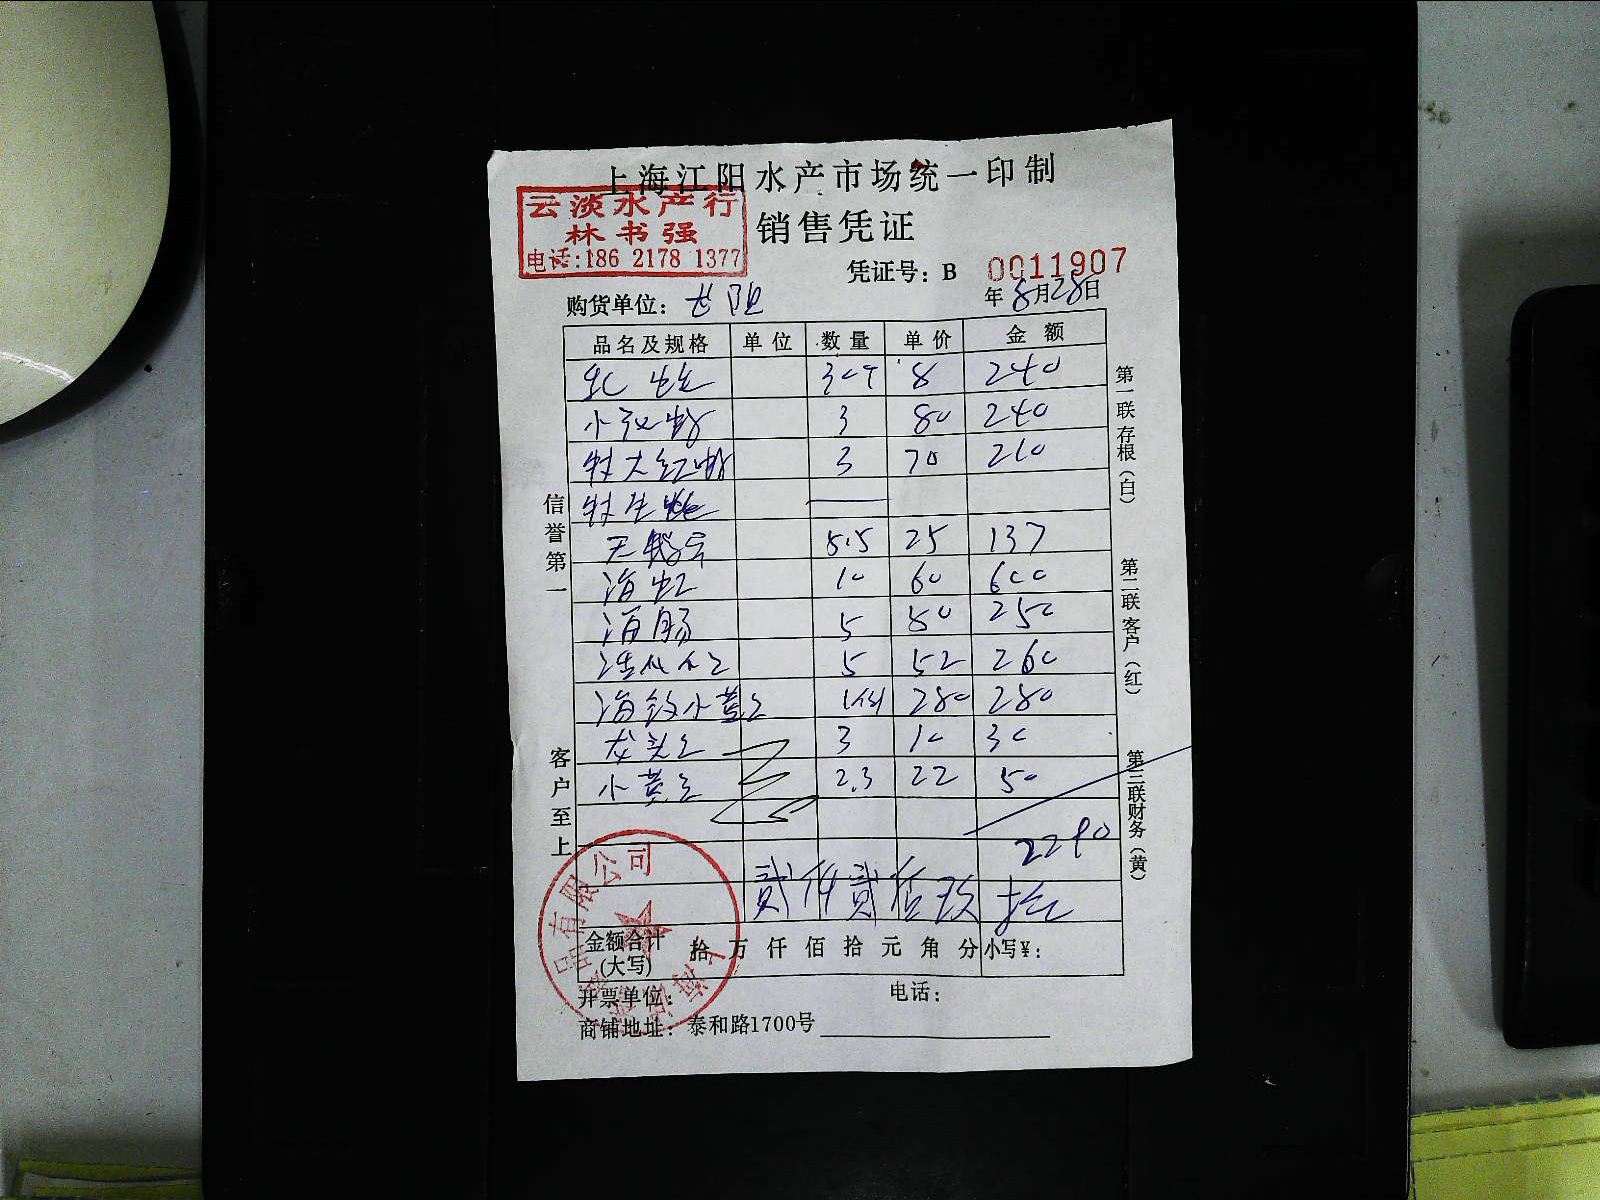 上海江阳水产市场统一印制
云淡水产行
林书强
电话:186 2178 1377
销售凭证
凭证号: B 0011907
购货单位:
年 8月28日
品名及规格 单位 数量 单价 金额
8 240
小 3 80 240
特大红 3 70 210
特生
5.5 25 137
海虹 10 60 600
海肠 5 50 250
5 52 260
280 280
龙头 3 10 30
小黄 2.3 22 50
2290
贰仟贰佰玖拾
金额合计(大写) 拾 万 仟 佰 拾 元 角 分 小写¥:
开票单位: 电话:
商铺地址: 泰和路1700号
信誉第一
客户至上
第一联存根(白)
第二联客户(红)
第三联财务(黄)
品有限公司